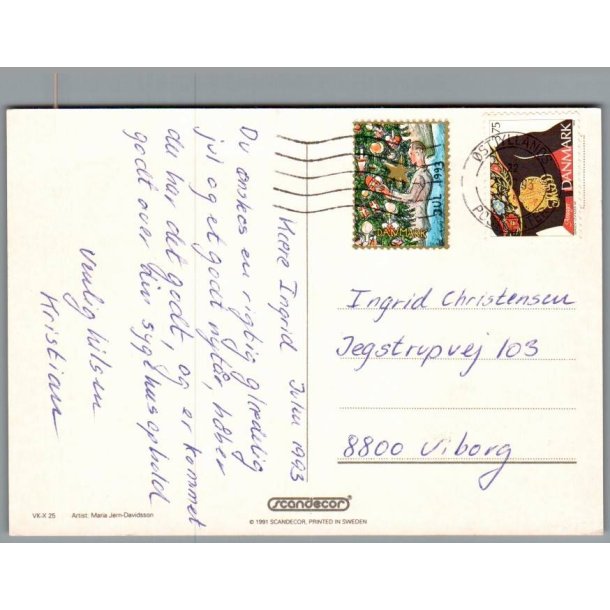 Kære Ingrid Julen 1993
Du ønskes en rigtig glædelig
jul og et godt nytår, håber
du har det godt, og er kommet
godt over din sygehusophold
Venlig hilsen
Kristian
JUL 1993
DANMARK
ØSTJYLLANDS
DANMARK
Ingrid Christensen
Jegstrupvej 103
8800 Viborg
scandecor®
© 1991 SCANDECOR, PRINTED IN SWEDEN
VK-X 25 Artist: Maria Jern-Davidsson